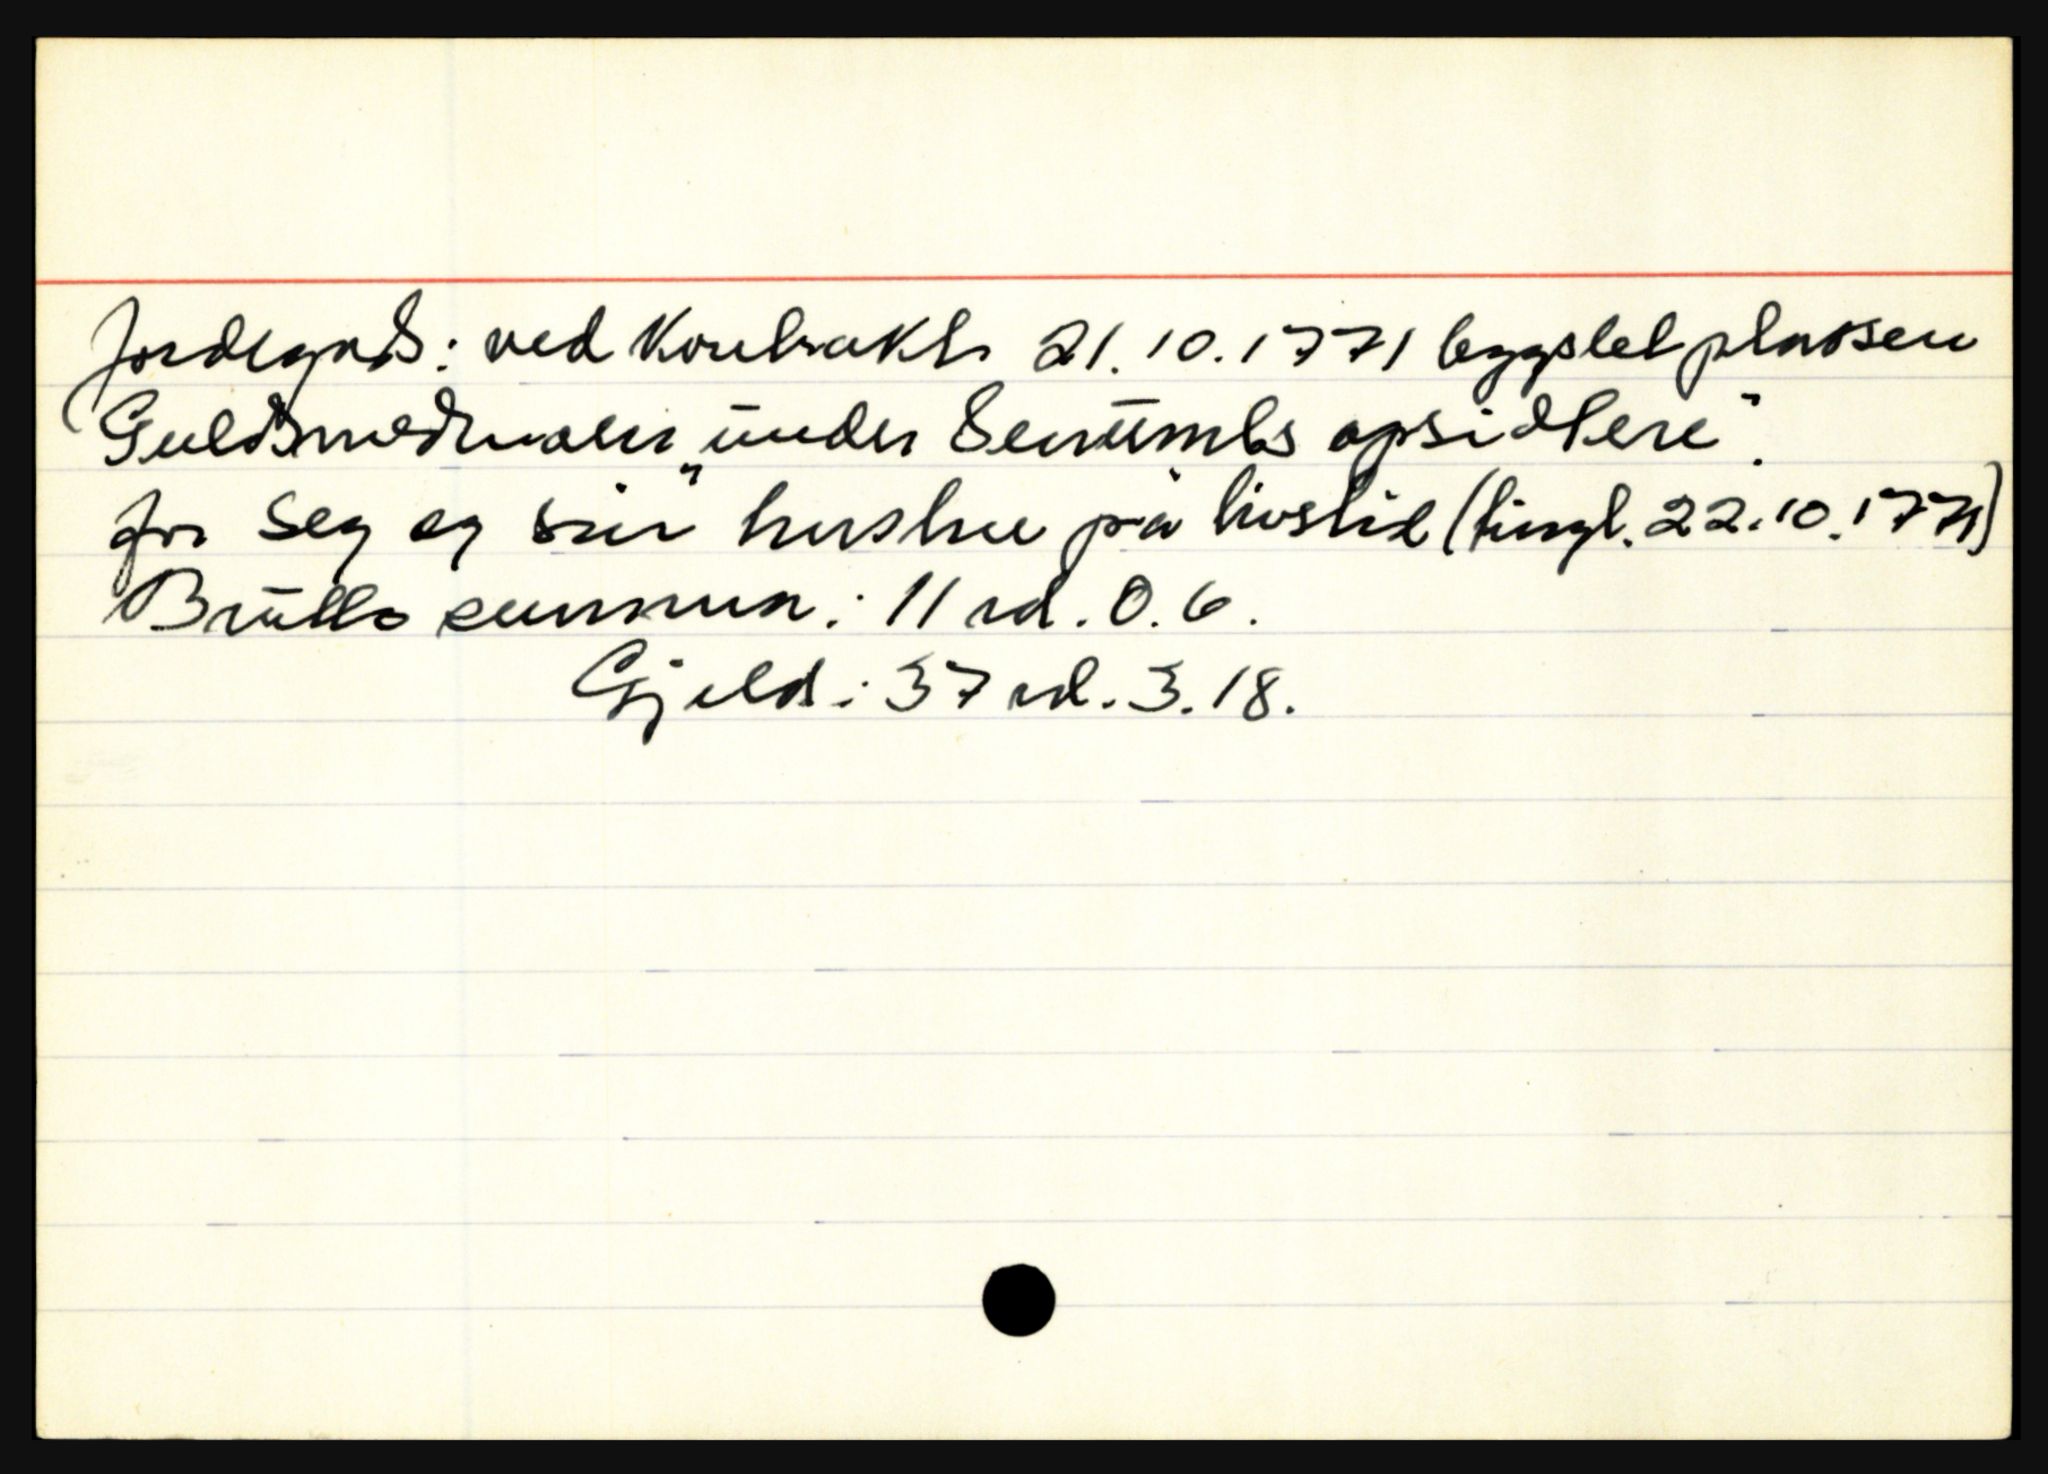 Jordegods: ved Kontrakt 21.10.1771 bygslet plassen
under opsidtere".
for seg og sin hustru på livstid (tingl. 22.10.1771)
Brutto summen: 11 rd. 0. 6.
Gjeld: 37 rd. 3. 18.